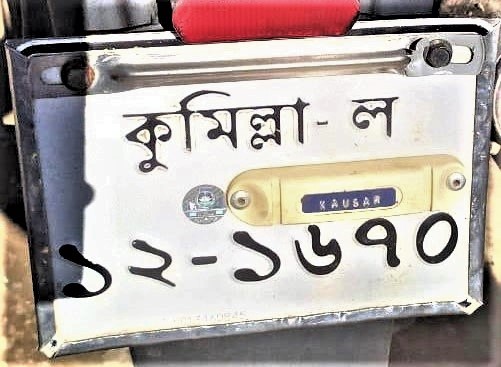 কুমিল্লা - ল
KAUSAR
১২-১৬৭০